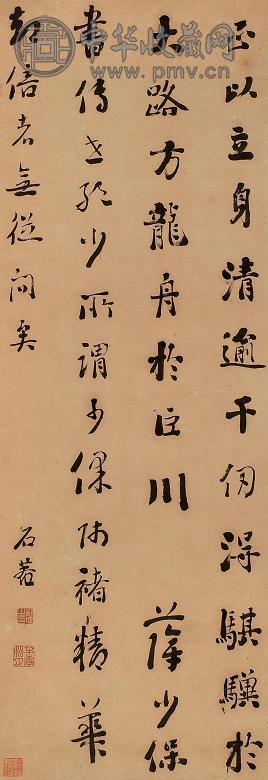 中华收藏网
www.pmv.cn
正以立身清逾千仞得騏驥於
大路方龍舟於巨川 薛少保
書傳世少所謂少保師褚精華
倍者無從問矣
石菴